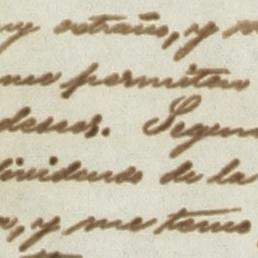 uy extraño, y m
me permiten
deseos. Segun
dividendo de la
, y me temo